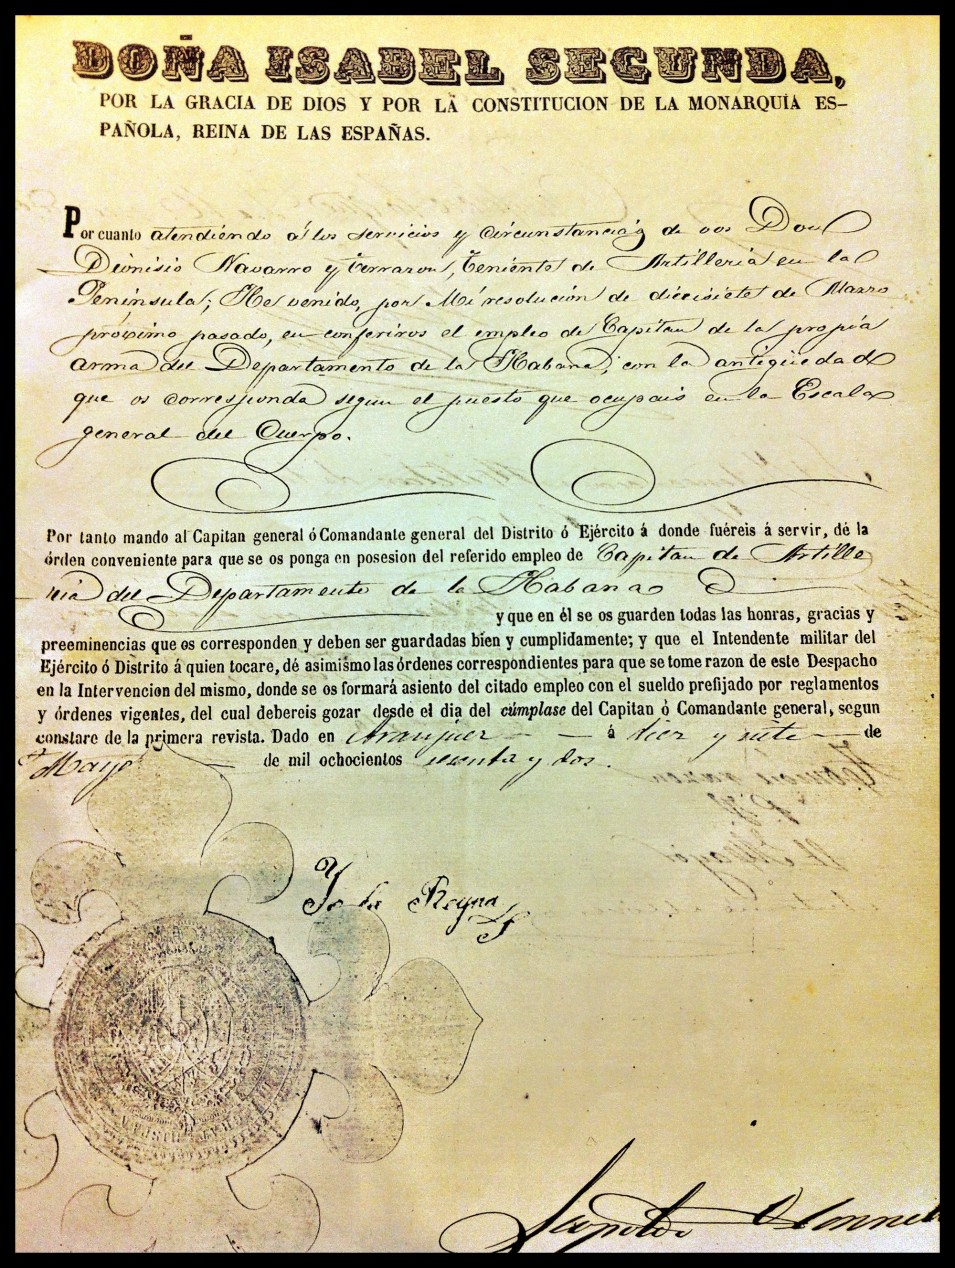 DOÑA ISABEL SEGUNDA,
POR LA GRACIA DE DIOS Y POR LA CONSTITUCION DE LA MONARQUÍA ES-
PAÑOLA, REINA DE LAS ESPAÑAS.
Por cuanto atendiendo á los servicios y circunstancias de vos Don
Dionisio Navarro y Terrazon, Teniente de Artilleria en la
Peninsula; He venido, por Mi resolución de diecisiete de Marzo
próximo pasado, en conferiros el empleo de Capitan de la propia
arma del Departamento de la Habana, con la antigüedad
que os corresponda segun el puesto que ocupais en la Escala
general del Cuerpo.
Por tanto mando al Capitan general ó Comandante general del Distrito ó Ejército á donde fuéreis á servir, dé la
órden conveniente para que se os ponga en posesion del referido empleo de Capitan de Artille
ria del Departamento de la Habana
y que en él se os guarden todas las honras, gracias y
preeminencias que os corresponden y deben ser guardadas bien y cumplidamente; y que el Intendente militar del
Ejército ó Distrito á quien tocare, dé asimismo las órdenes correspondientes para que se tome razon de este Despacho
en la Intervencion del mismo, donde se os formará asiento del citado empleo con el sueldo prefijado por reglamentos
y órdenes vigentes, del cual debereis gozar desde el dia del cúmplase del Capitan ó Comandante general, segun
constare de la primera revista. Dado en Aranjuez á diez y siete de
Mayo de mil ochocientos sesenta y dos.
Yo la Reyna
Leopoldo O'Donnell